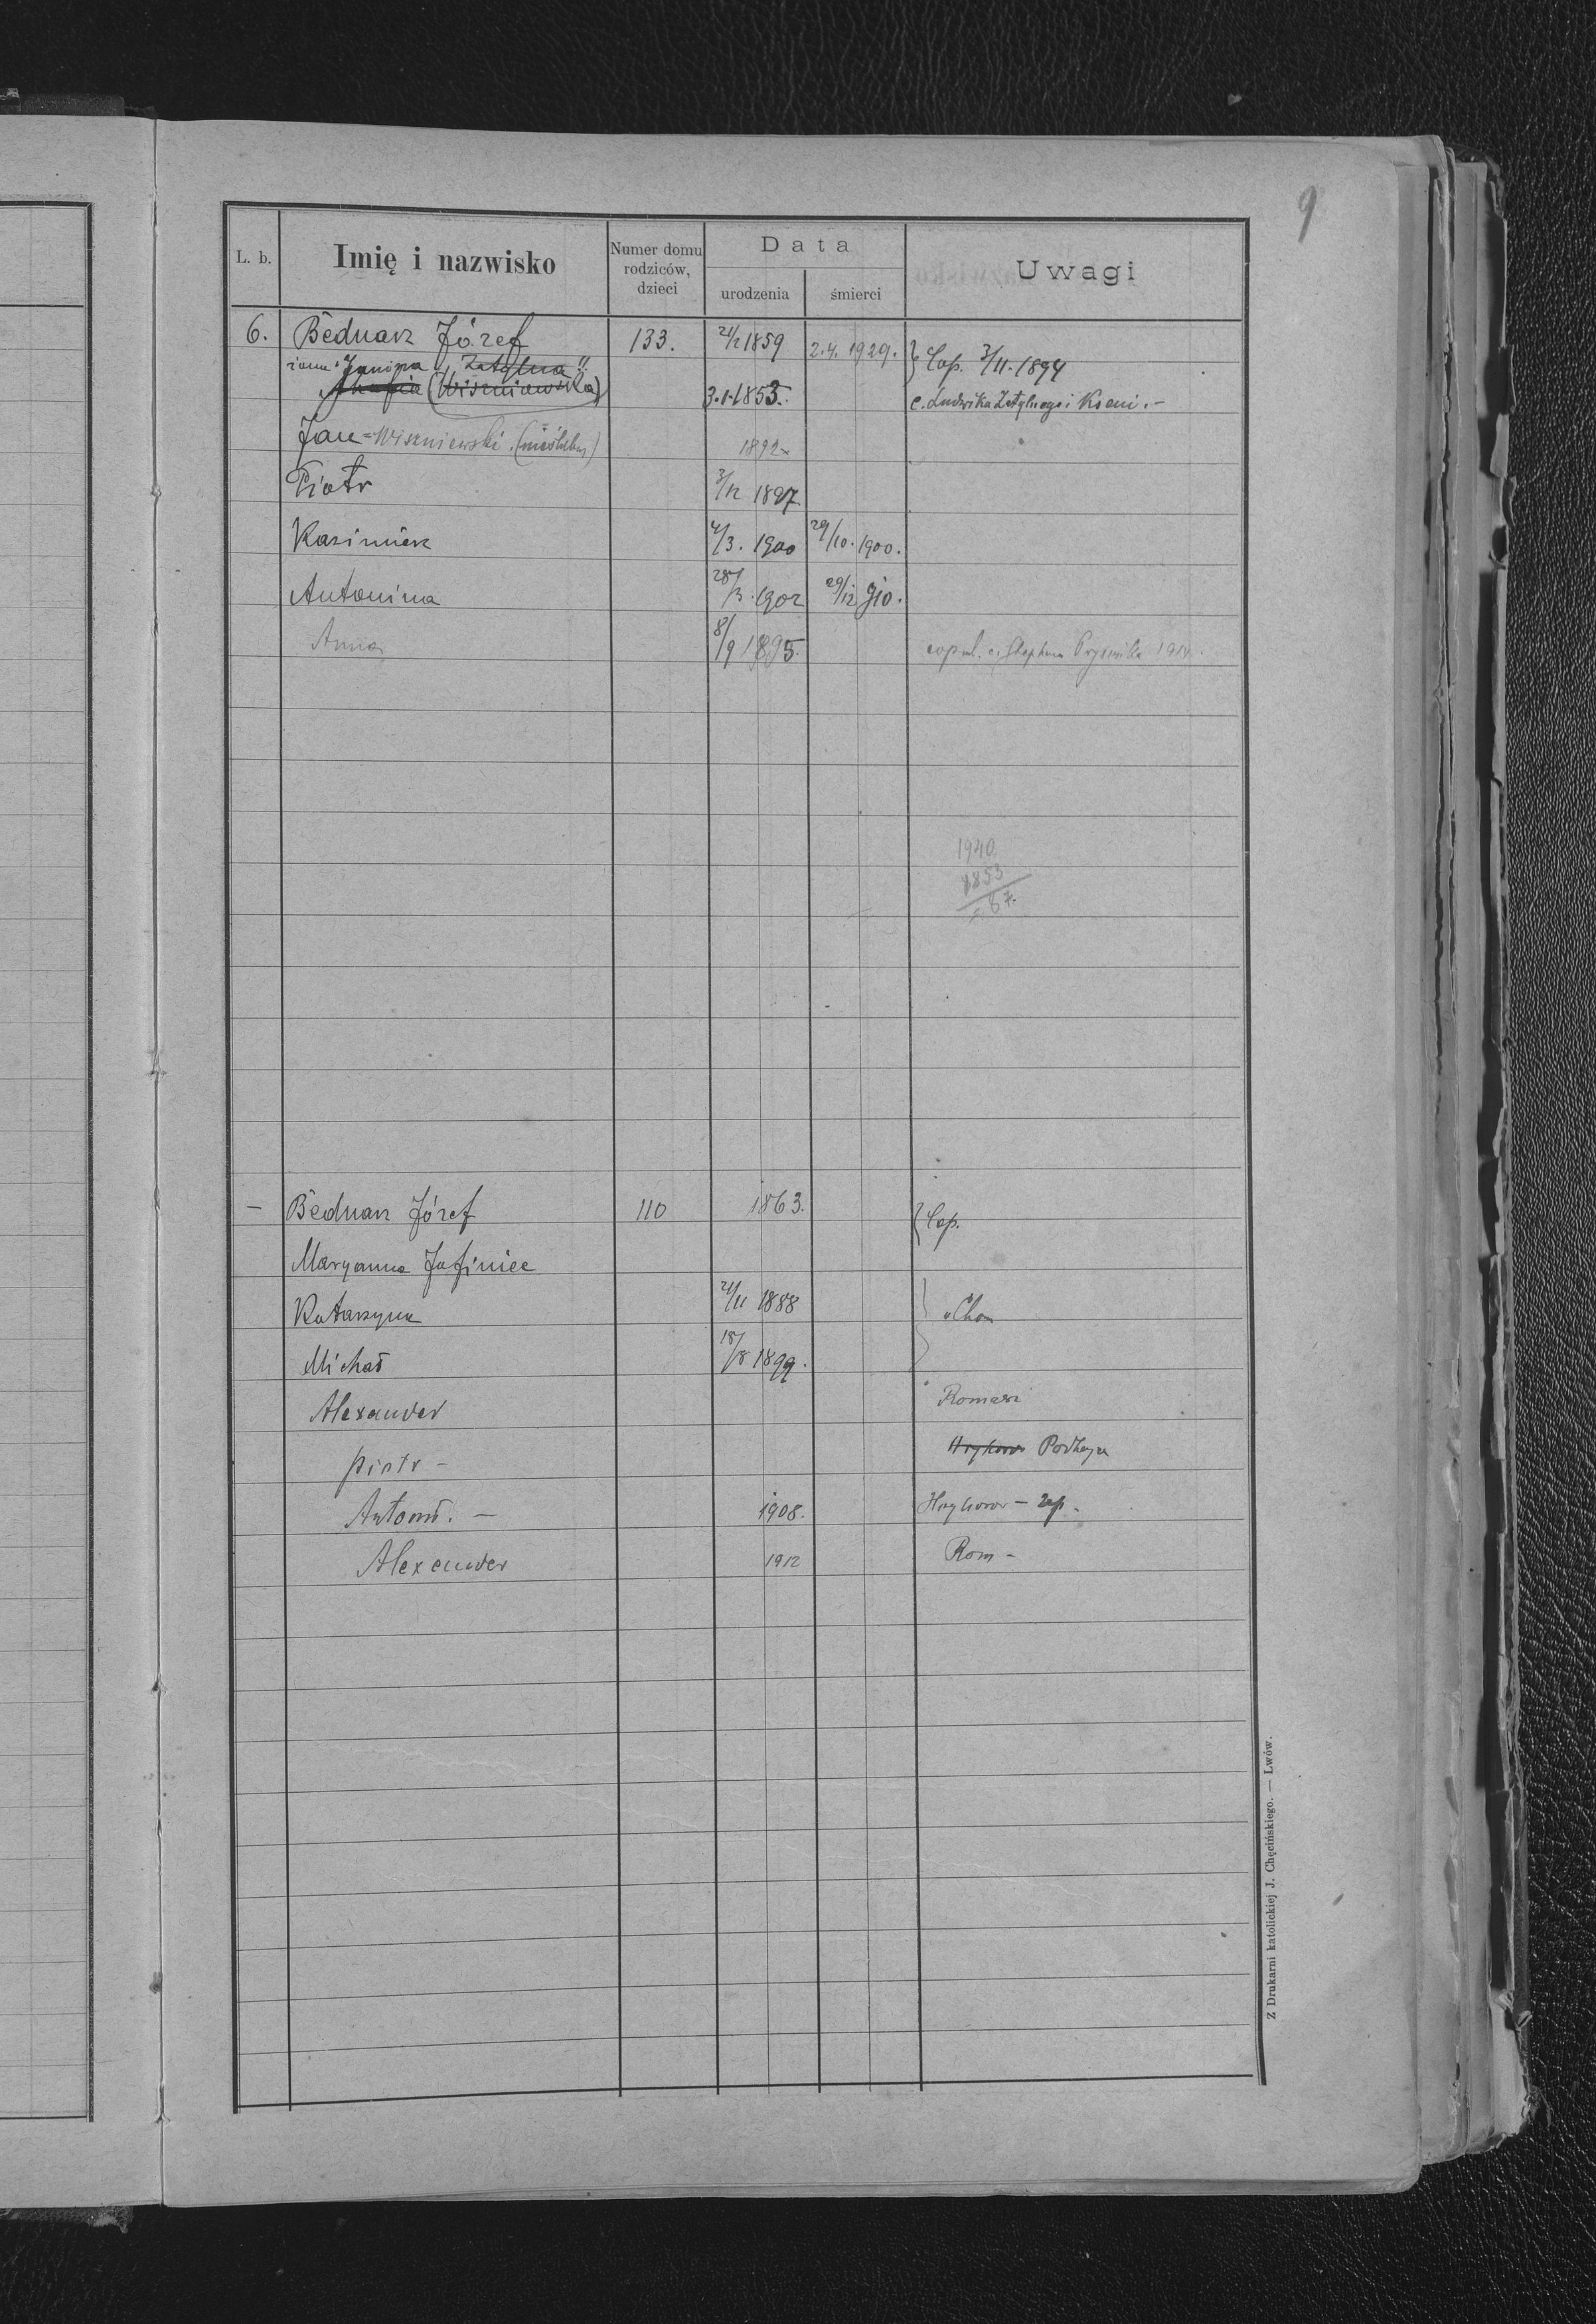 9
L. b. Imię i nazwisko Numer domu rodziców, dzieci Data urodzenia śmierci Uwagi
6. Bednarz Józef 133. 21/2 1859 2.4. 1929. Cop. 3/11. 1894
żona: "Zatylna"
(Wiszniewska) 3.1.1853. c. Ludwika Zatylnego i Kseni. -
Jan = Wiszniewski. (nieślubny) 1892
Piotr 3/12 1897
Kazimierz 4/3. 1900 29/10. 1900.
Antonina 28/3. 1902 29/12 910.
Anna 8/9 1895.
1940
1853
87.
- Bednarz Józef 110 1863. Cop.
Maryanna
Katarzyna 21/11 1888
Michał 18/8 1899.
Alexander
Piotr -
Antoni. - 1908. Hryhorow -
Alexander 1912 Rom -
Z Drukarni katolickiej J. Chęcińskiego. — Lwów.